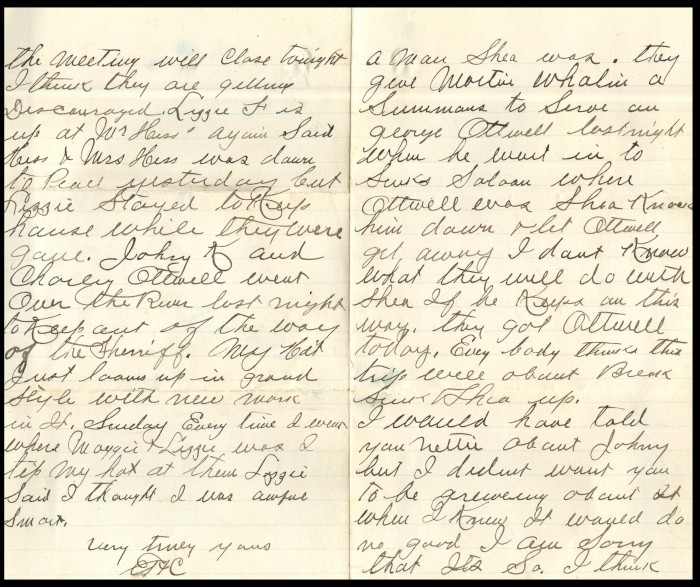 the meeting will close tonight
I think they are getting
Discouraged. Lizzie F is
up at Wm Hess' again Said
Hess & Mrs Hess was down
to Pearl yesterday but
Lizzie Stayed to Keep
house while they were
gone. Johny K and
Charley Ottwell went
Over the River last night
to Keep out of the way
of the Sheriff. My Hat
Just looms up in grand
Style with new mark
in It. Sunday Every time I went
where Maggie & Lizzie was I
tip my hat at them Lizzie
Said I thought I was awful
Smart.
very truly yours
a Man Shea was. they
give Martin Whalin a
Summans to Serve on
george Ottwell last night
when he went in to
Saloon where
Ottwell was Shea Knocked
him down & let Ottwell
get away I dont Know
what they will do with
Shea If he Keeps on this
way. they got Ottwell
today. Every body thinks this
trip will about Break
Shea up.
I would have told
you Nettie about Johny
but I didnt want you
to be about It
when I Know It would do
no good I am Sorry
that Its So. I think